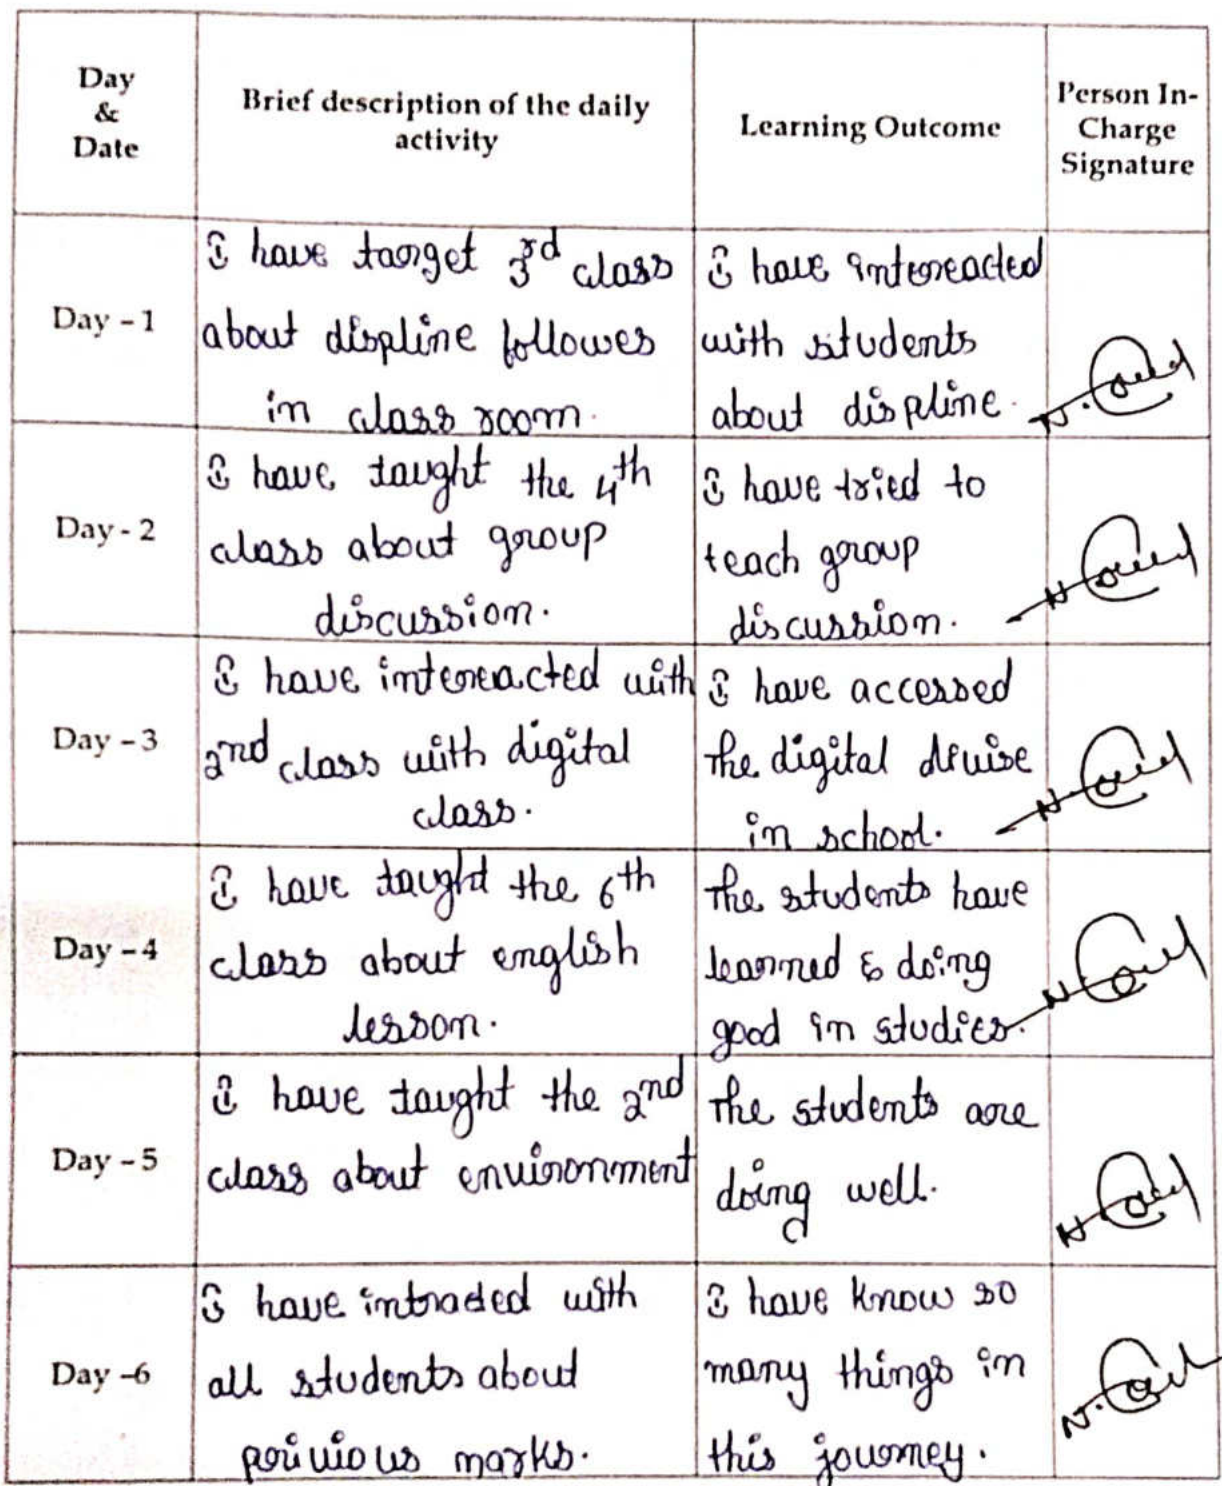 Day
&
Date
Brief description of the daily
activity
Learning Outcome
Person In-
Charge
Signature
Day - 1
I have target 3rd class
about displine followes
in class room.
I have intereacted
with students
about displine.
Day - 2
I have taught the 4th
class about group
discussion.
I have tried to
teach group
discussion.
Day - 3
I have intereacted with
2nd class with digital
class.
I have accessed
the digital devise
in school.
Day - 4
I have taught the 6th
class about english
lesson.
The students have
learned & doing
good in studies.
Day - 5
I have taught the 2nd
class about environment
The students are
doing well.
Day -6
I have intracted with
all students about
perivious marks.
I have know so
many things in
this journey.